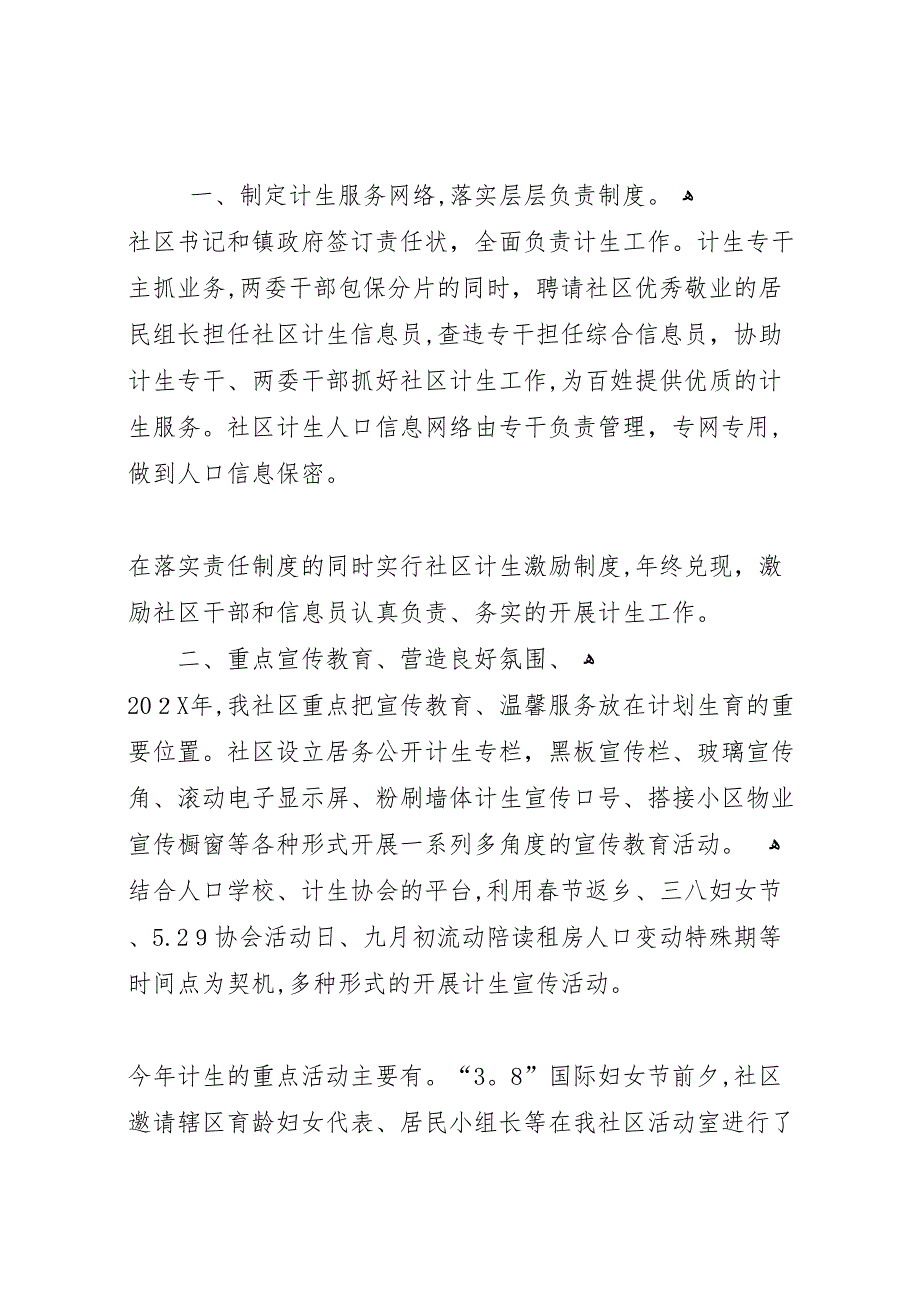 一、制定计生服务网络,落实层层负责制度。 ﻫ
社区书记和镇政府签订责任状，全面负责计生工作。计生专干
主抓业务,两委干部包保分片的同时，聘请社区优秀敬业的居
民组长担任社区计生信息员,查违专干担任综合信息员，协助
计生专干、两委干部抓好社区计生工作,为百姓提供优质的计
生服务。社区计生人口信息网络由专干负责管理，专网专用,
做到人口信息保密。
在落实责任制度的同时实行社区计生激励制度,年终兑现，激
励社区干部和信息员认真负责、务实的开展计生工作。
二、重点宣传教育、营造良好氛围、 ﻫ
20２X年,我社区重点把宣传教育、温馨服务放在计划生育的重
要位置。社区设立居务公开计生专栏，黑板宣传栏、玻璃宣传
角、滚动电子显示屏、粉刷墙体计生宣传口号、搭接小区物业
宣传橱窗等各种形式开展一系列多角度的宣传教育活动。 ﻫ
结合人口学校、计生协会的平台,利用春节返乡、三八妇女节
、5.２９协会活动日、九月初流动陪读租房人口变动特殊期等
时间点为契机,多种形式的开展计生宣传活动。
今年计生的重点活动主要有。“3。8”国际妇女节前夕,社区
邀请辖区育龄妇女代表、居民小组长等在我社区活动室进行了